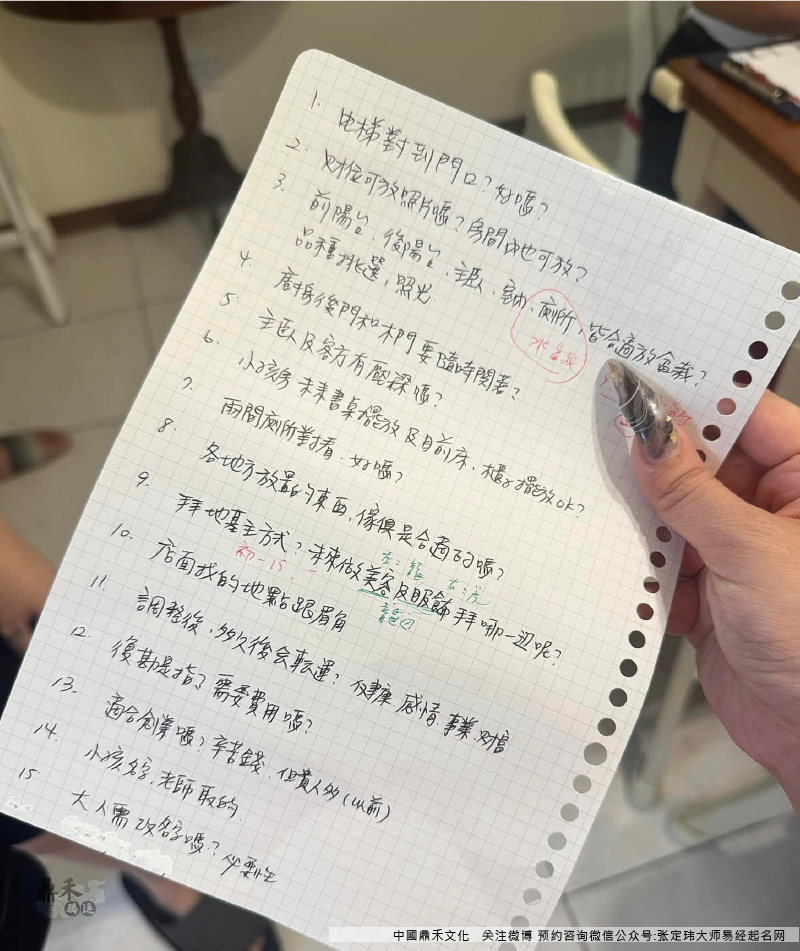 1. 电梯對到門口?好嗎?
2. 财位可放照片嗎?房間內也可放?
3. 前陽台、後陽台、主臥、室內、廁所,皆合適放盆栽?
品種挑選,照光
水
4. 廚房後門和木門要隨時関著?
5. 主臥及客方有壓梁嗎?
6. 小孩房未来書桌擺放及目前床、櫃子擺放ok?
7. 兩間廁所對看、好嗎?
8. 各地方放置的東西,傢俱是合適的嗎?
9. 拜地基主方式?未来做美容及服飾拜哪一边呢?
初一、15
左:龍
右:虎
10. 店面找的地點跟眉角
11. 調整後,多久後会転運?健康 感情 事業 财富
12. 復勘是指?需要費用嗎?
13. 適合創業嗎?辛苦錢、但貴人多(以前)
14. 小孩名字,老師取的
15 大人需改名字嗎?必要性
鼎禾
中國鼎禾文化 关注微博 预约咨询微信公众号:张定玮大师易经起名网